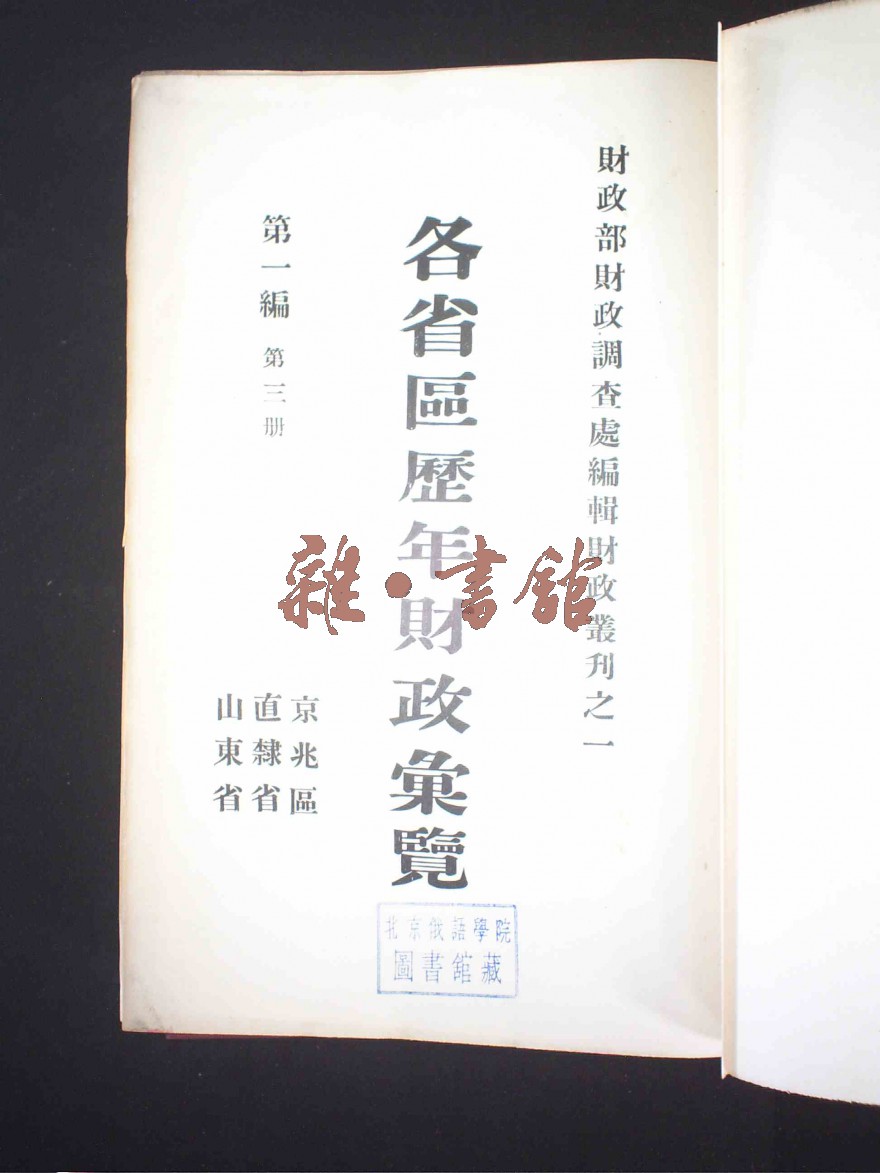 財政部財政調查處編輯財政叢刊之一
各省區歷年財政彙覽
第一編 第三册
京兆區
直隸省
山東省
雜·書館
北京俄語學院
圖書館藏